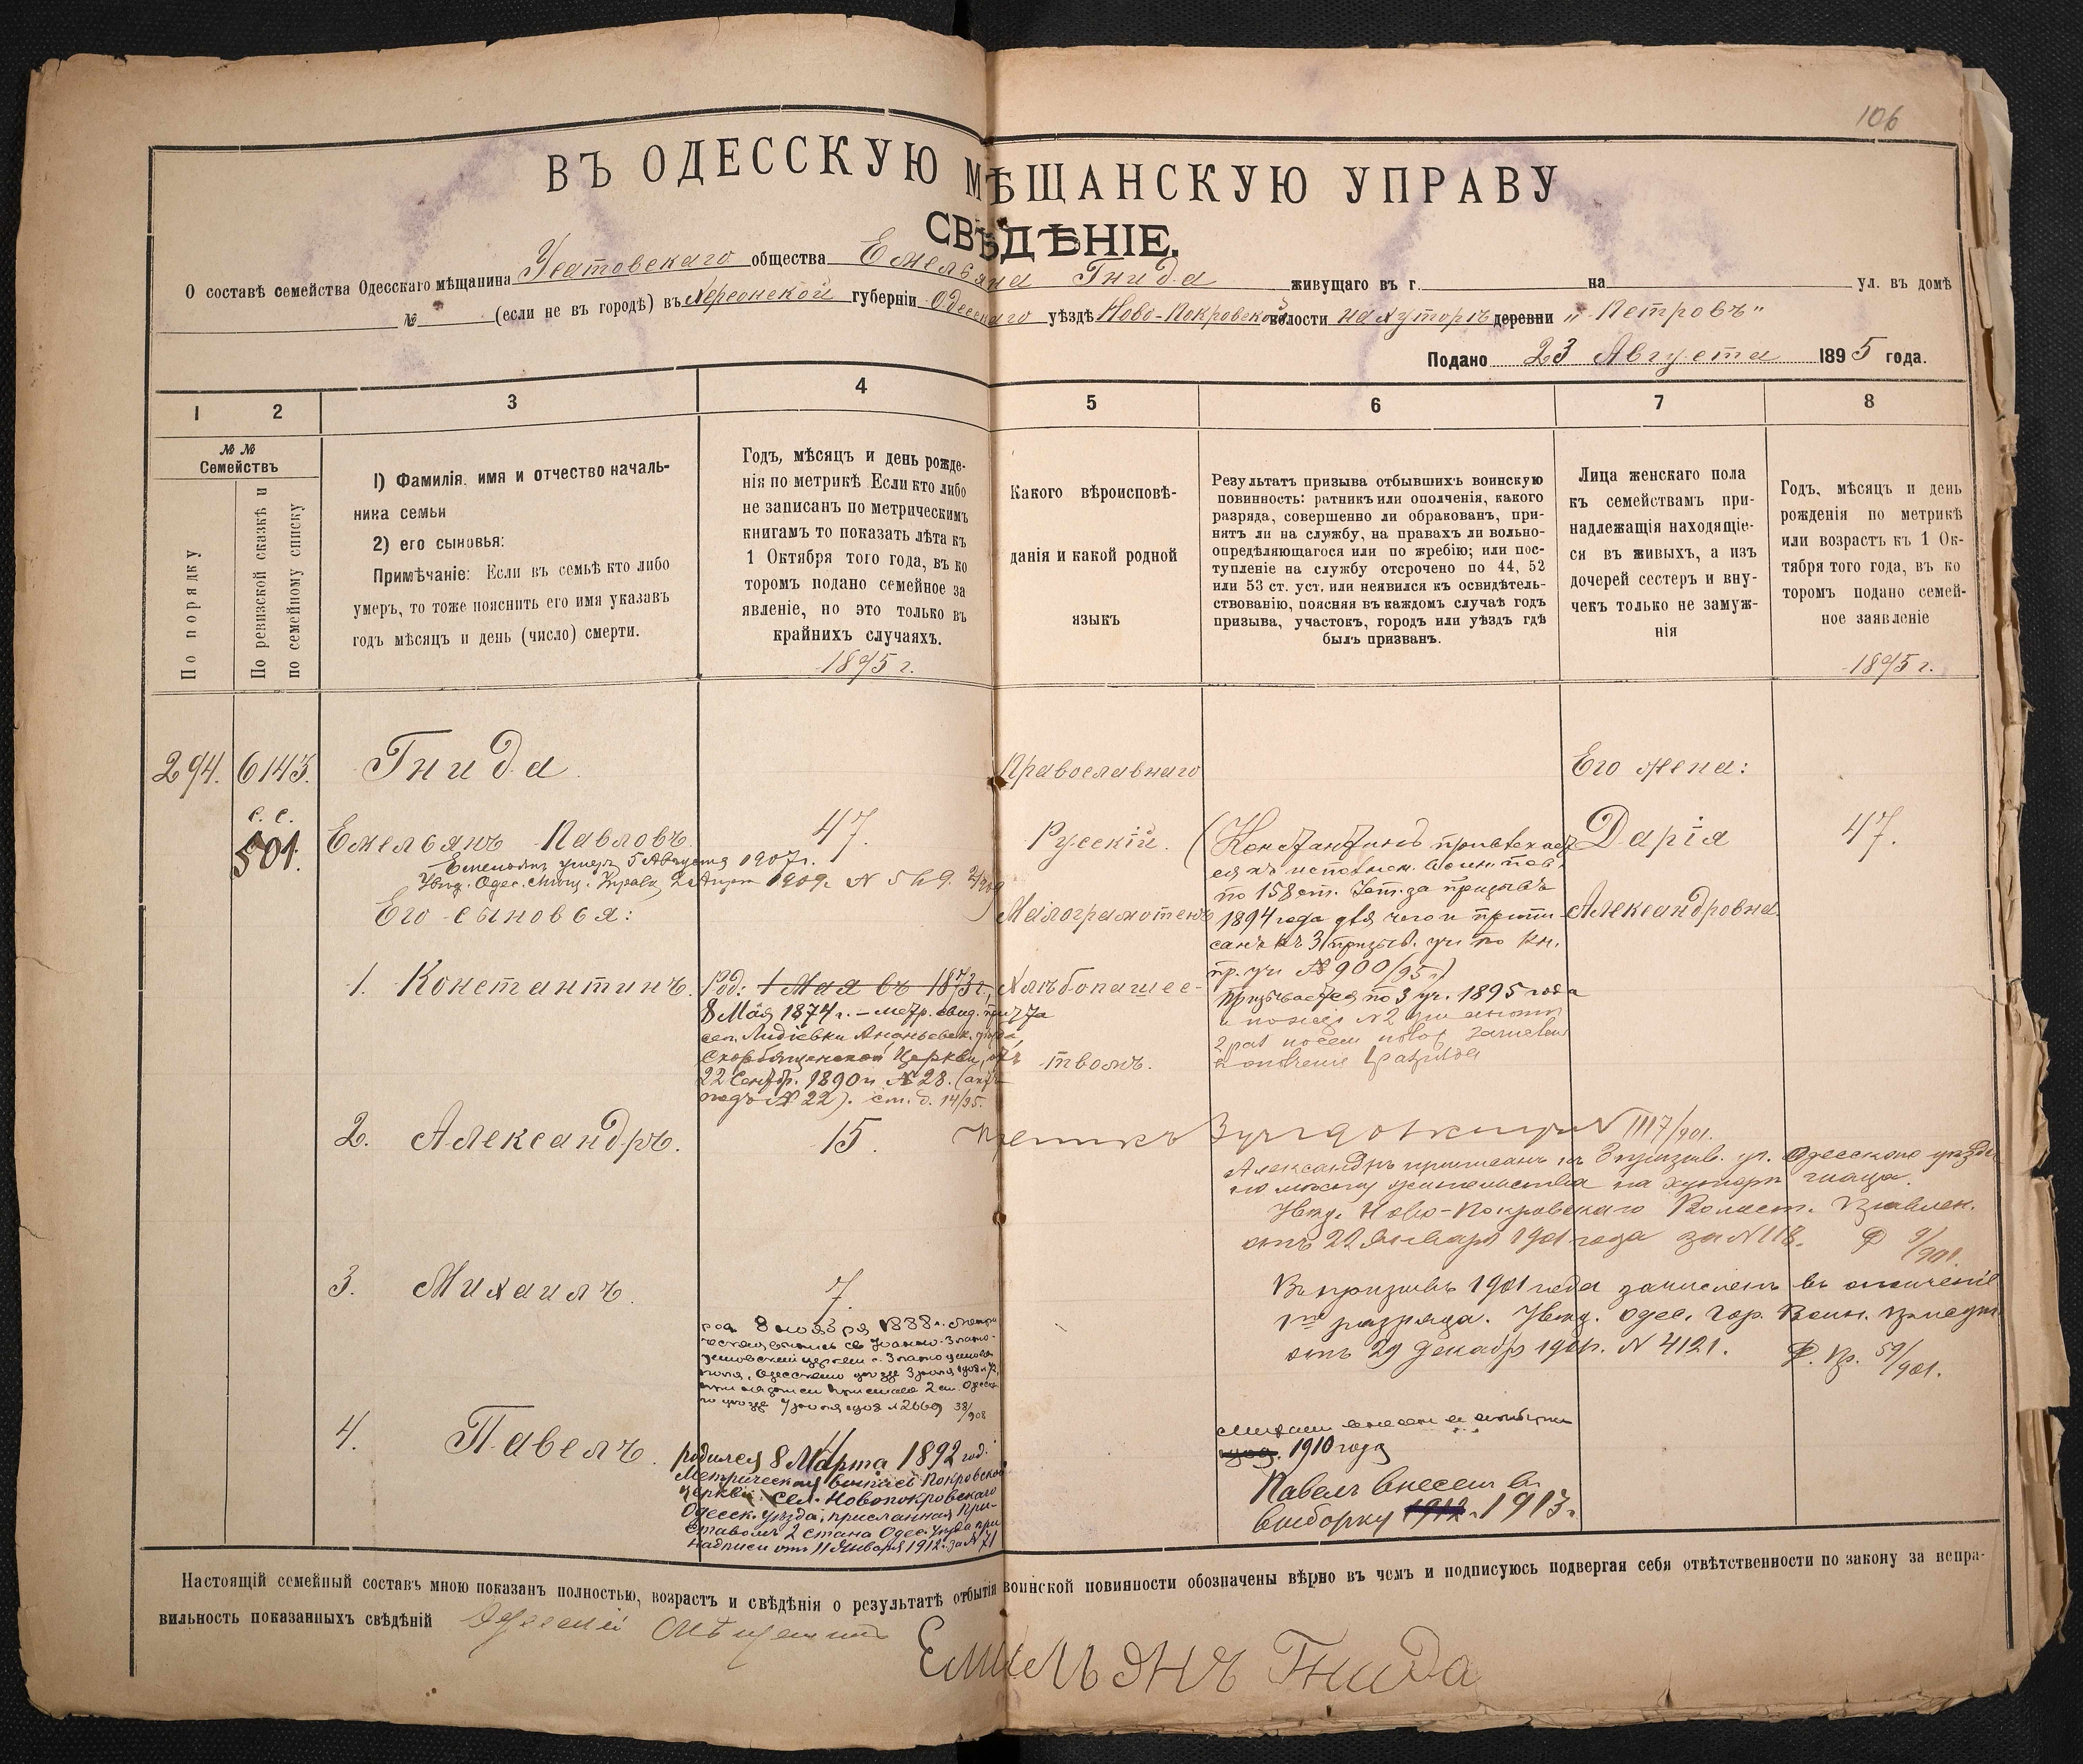 106
ВЪ ОДЕССКУЮ МѢЩАНСКУЮ УПРАВУ
СВѢДѢНІЕ.
О составѣ семейства Одесскаго мѣщанина Усатовскаго общества Емельяна Гнида живущаго въ г. на ул. въ домѣ
№ (если не въ городѣ) въ Херсонской губерніи Одесскаго уѣздѣ Ново-Покровской волости на хуторѣ деревни „Петровъ"
Подано 23 Августа 1895 года.
1 2 3 4 5 6 7 8
№ №
Семействъ
По порядку
По ревизской сказкѣ и
по семейному списку
1) Фамилія. имя и отчество началь-
ника семьи
2) его сыновья:
Примѣчаніе: Если въ семьѣ кто либо
умеръ, то тоже пояснить его имя указавъ
годъ мѣсяцъ и день (число) смерти.
Годъ, мѣсяцъ и день рожде-
нія по метрикѣ Если кто либо
не записанъ по метрическимъ
книгамъ то показать лѣта къ
1 Октября того года, въ ко
торомъ подано семейное за
явленіе, но это только въ
крайнихъ случаяхъ.
1895 г.
Какого вѣроисповѣ-
данія и какой родной
языкъ
Результатъ призыва отбывшихъ воинскую
повинность: ратникъ или ополченія, какого
разряда, совершенно ли обракованъ, при-
нятъ ли на службу, на правахъ ли вольно-
опредѣляющагося или по жребію; или пос-
тупленіе на службу отсрочено по 44, 52
или 53 ст. уст. или неявился къ освидѣтель-
ствованію, поясняя въ каждомъ случаѣ годъ
призыва, участокъ, городъ или уѣздъ гдѣ
былъ призванъ.
Лица женскаго пола
къ семействамъ при-
надлежащія находящіе-
ся въ живыхъ, а изъ
дочерей сестеръ и вну-
чекъ только не замуж-
нія
Годъ, мѣсяцъ и день
рожденія по метрикѣ
или возрастъ къ 1 Ок-
тября того года, въ ко
торомъ подано семей-
ное заявленіе
1895 г.
294. 6143. Гнида Православнаго Его жена:
с. с.
501. Емельянъ Павловъ 47. Русскій. Дарія 47.
Емельянъ умеръ 5 Августа 1907 г.
Увѣд. Одес. Мѣщ. Управы 2 1909. № 549.
Его сыновья: Малограмотенъ Александровна
(Константинъ привлекает
ся къ исполнен. воин. пов.
по 158 ст. Уст. за призывъ
1894 года для чего и припи-
санъ къ 3 призыв. уч. по кн.
пр. уч. № 900/95 г.)
Призывается по 3 уч. 1895 года
1. Константинъ. Род: 1 Мая въ 1873 г., Хлѣбопашес-
твомъ.
8 Мая 1874 г. – метр. свид. причта
сел. Лидіевки Ананьевск. уѣзда,
Скорбященской Церкви, отъ
22 Сентбр. 1890 г. № 28. (актъ
подъ № 22). см. д. 14/95.
2. Александръ. 15.
№ 1117/901.
Александръ приписанъ къ 3 призыв. уч. Одесскаго уѣзда
по мѣсту жительства на хуторѣ
Увѣд. Ново-Покровскаго Волост. Правлен.
отъ 22 Января 1901 года за № 118. 9/901.
3. Михаилъ. 7.
Въ призывъ 1901 года зачисленъ въ ополченіе
1го разряда. Увѣд. Одес. Гор. Воин. Присут.
отъ 29 Декабр 1901 г. № 4121. Ф. Пр. 59/901.
род. 8 ноября 1888 г.
38/908
1910 года
4. Павелъ. 4
родился 8 Марта 1892 год.
Метрическая выпись Покровской
церкви, сел. Новопокровскаго
Одесск. уѣзда; присланная При-
ставомъ 2 стана Одес. Уѣзда при
надписи отъ 11 Января 1912 г. за № 71
Павелъ внесенъ въ
выборку 1912. 1913.
Настоящій семейный составъ мною показанъ полностью, возрастъ и свѣдѣнія о результатѣ отбытія воинской повинности обозначены вѣрно въ чемъ и подписуюсь подвергая себя отвѣтственности по закону за непра-
вильность показанныхъ свѣдѣній Одескій Мѣщанинъ
Емильянъ Гнида